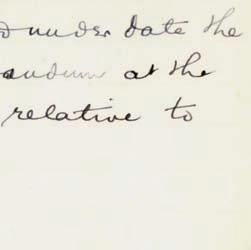 d under date the
andum at the
relative to